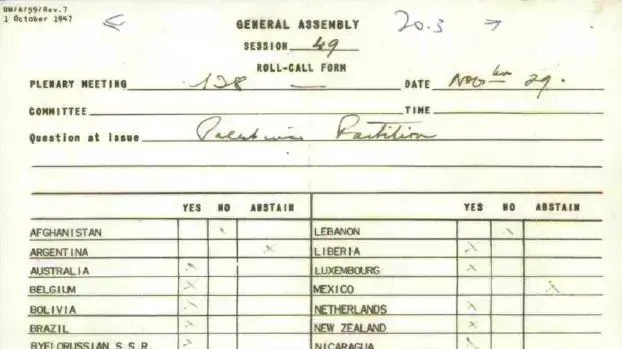 UN/A/59/Rev.7
1 October 1947
GENERAL ASSEMBLY
20.3
SESSION 49
ROLL-CALL FORM
PLENARY MEETING 128 DATE Nov 29.
COMMITTEE TIME
Question at issue Palestine Partition
YES NO ABSTAIN YES NO ABSTAIN
AFGHANISTAN x LEBANON x
ARGENTINA x LIBERIA x
AUSTRALIA x LUXEMBOURG x
BELGIUM x MEXICO x
BOLIVIA x NETHERLANDS x
BRAZIL x NEW ZEALAND x
BYELORUSSIAN S.S.R. x NICARAGUA x